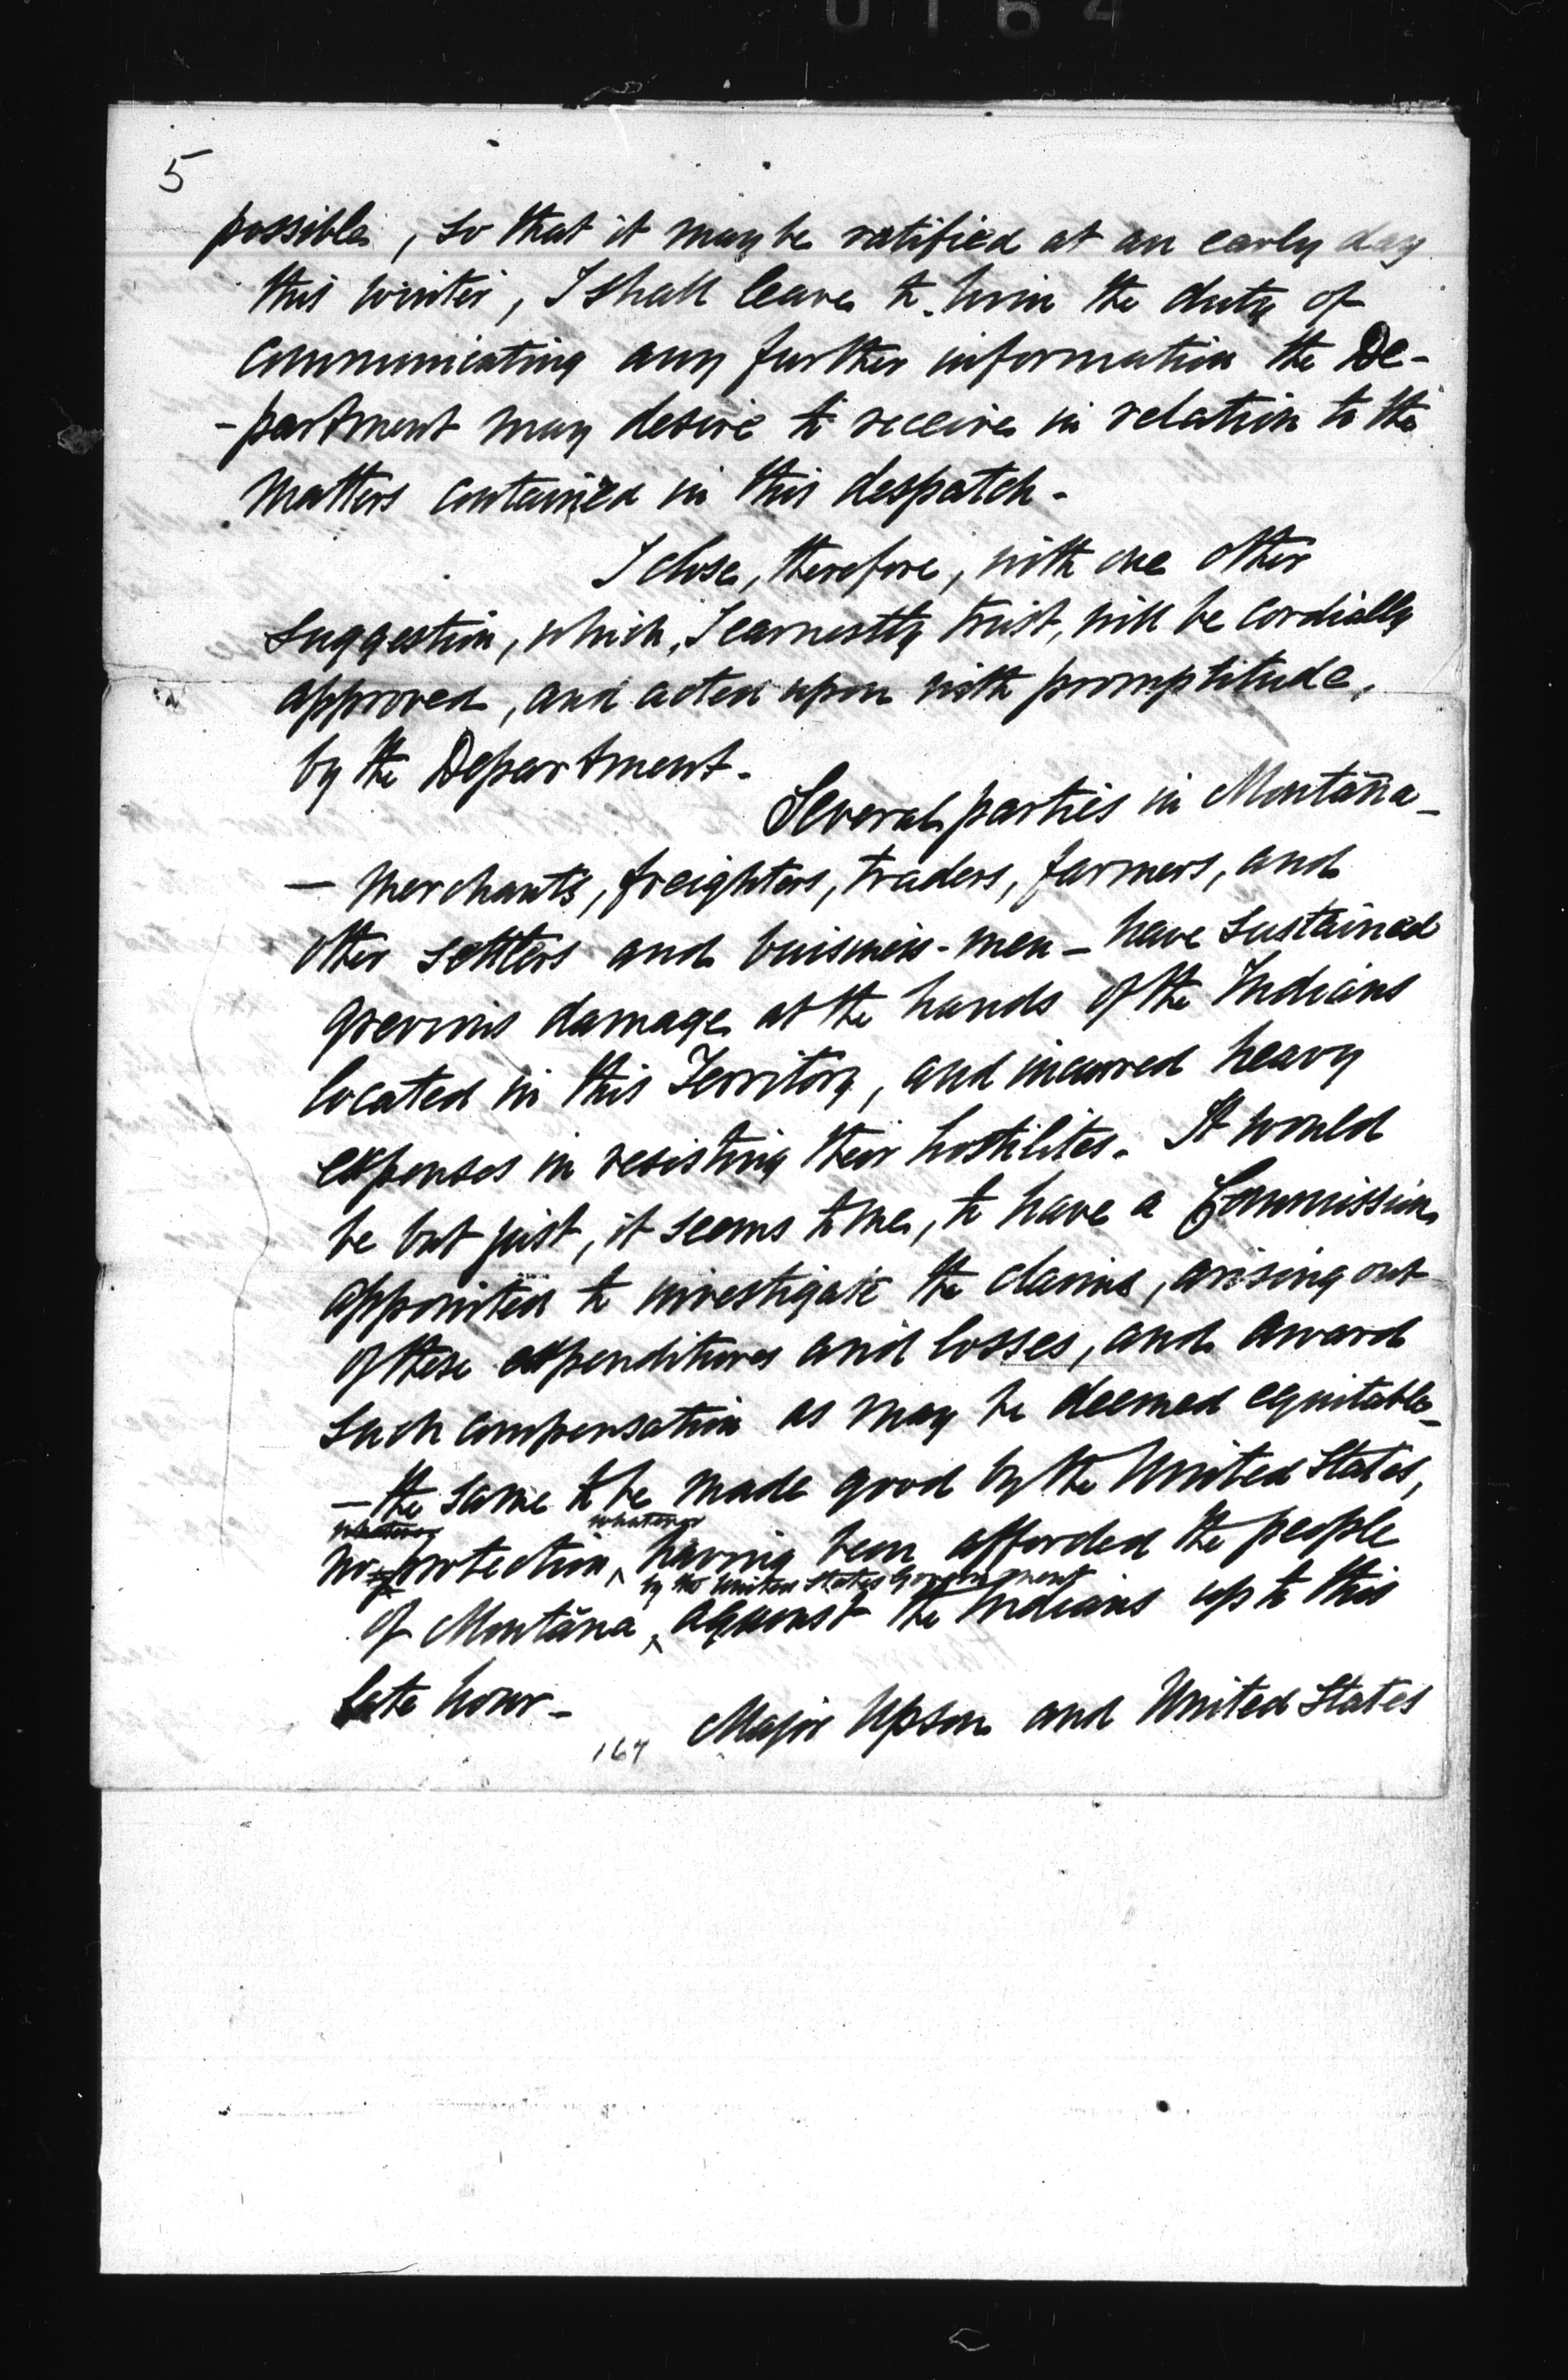 0164
5
possible, so that it may be ratified at an early day
this winter, I shall leave to him the duty of
communicating any further information the De-
-partment may desire to receive in relation to the
matters contained in this despatch.
I close, therefore, with one other
suggestion, which, I earnestly trust, will be cordially
approved, and acted upon with promptitude,
by the Department.
Several parties in Montaña—
— merchants, freighters, traders, farmers, and
other settlers and buisiness-men — have sustained
grevious damage at the hands of the Indians
located in this Territory, and incurred heavy
expenses in resisting their hostilites. It would
be but just, it seems to me, to have a Commission
appointed to investigate the claims, arising out
of these expenditures and losses, and award
such compensation as may be deemed equitable—
— the same to be made good by the United States,
whatever whatever
no protection, having been afforded the people
by the United States Government
of Montaña, against the Indians up to this
late hour—
Major Upson and United States
164